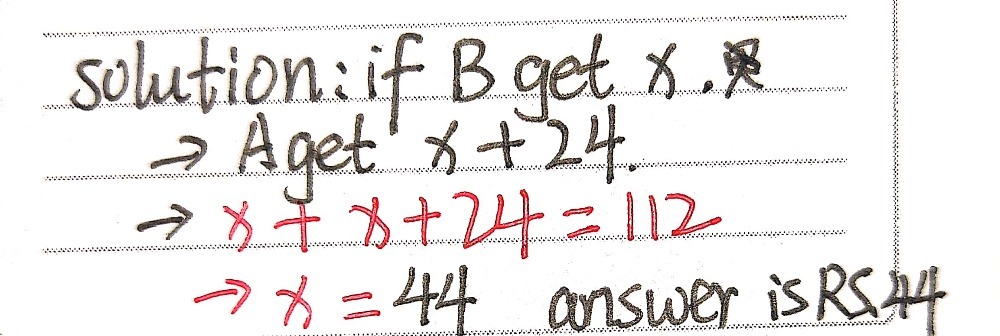 solution: if B get x.
→ A get x + 24.
→ x + x + 24 = 112
→ x = 44 answer is RS.44